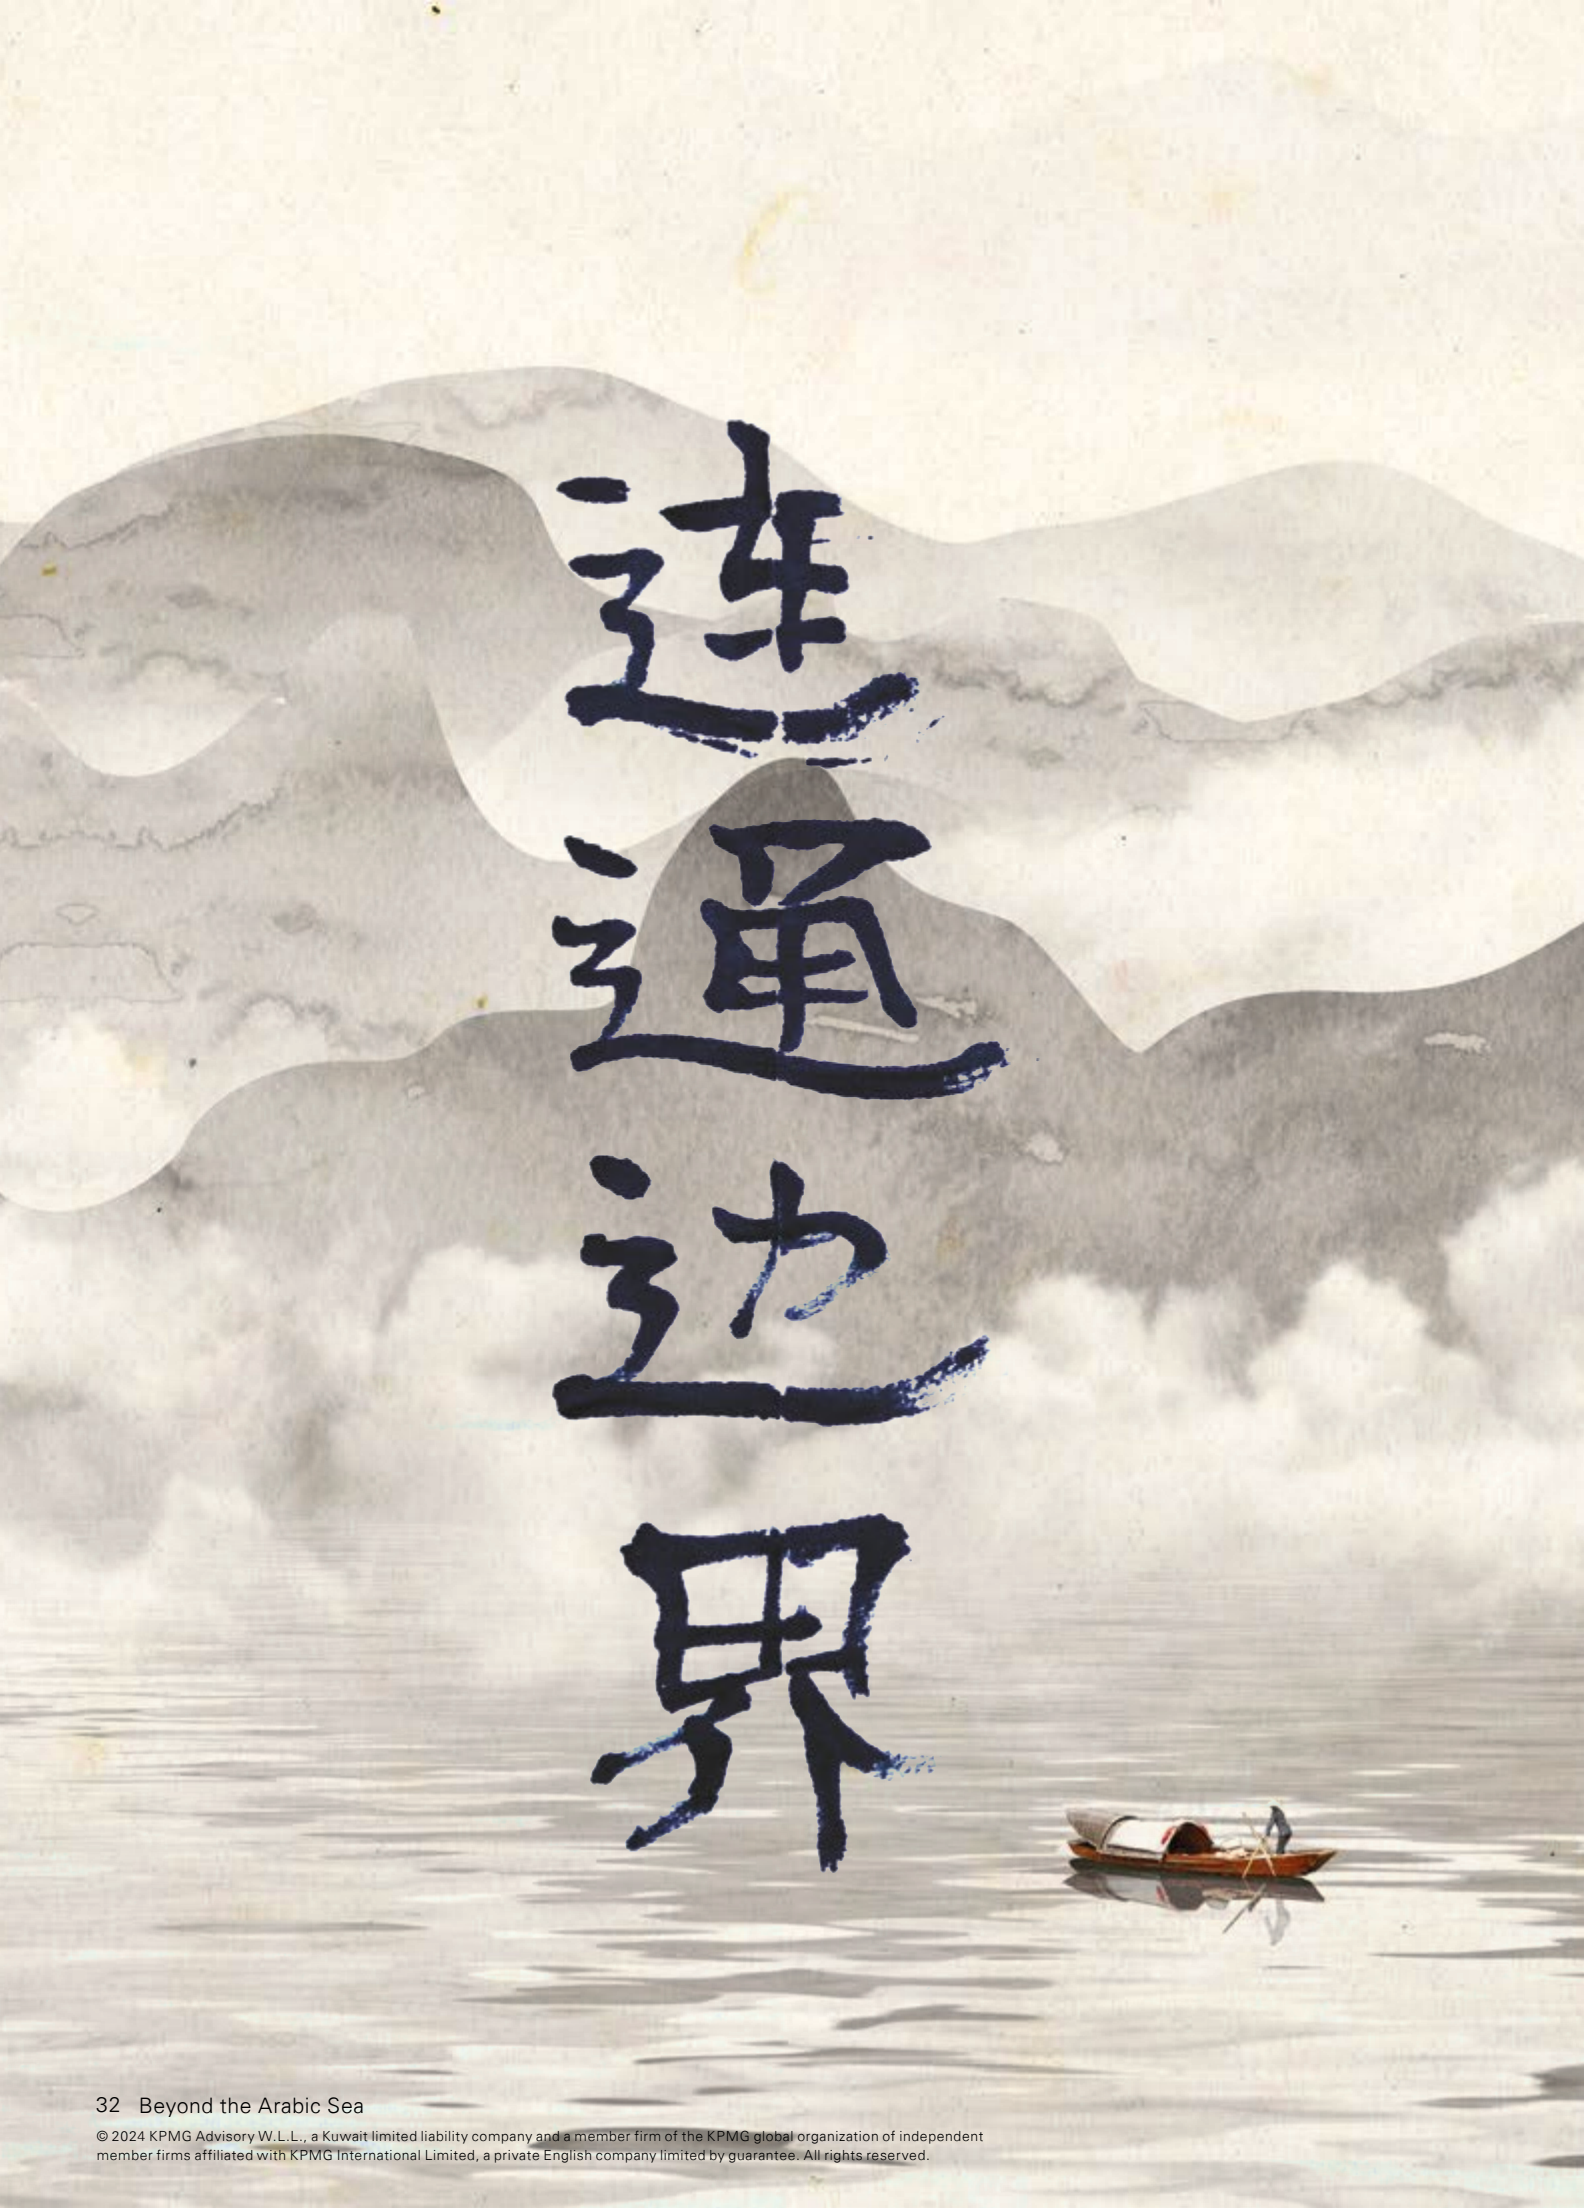 连通边界
32 Beyond the Arabic Sea
© 2024 KPMG Advisory W.L.L., a Kuwait limited liability company and a member firm of the KPMG global organization of independent
member firms affiliated with KPMG International Limited, a private English company limited by guarantee. All rights reserved.